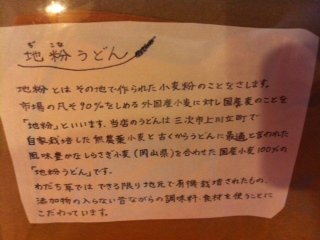 ぢ こな
地粉うどん
地粉とは その地で作られた小麦粉のことをさします。
市場の凡そ90%をしめる外国産小麦に対し国産麦のことを
「地粉」といいます。当店のうどんは 三次市上川立町で
自家栽培した無農薬小麦と古くからうどんに最適と言われた
風味豊かなしらさぎ小麦(岡山県)を合わせた国産小麦100%の
「地粉うどん」です。
わだち草では できる限り地元で有機栽培されたもの、
添加物の入らない昔ながらの調味料・食材を使うことに
こだわっています。